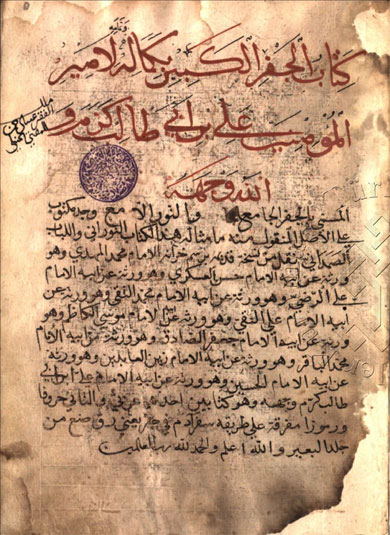 كتاب الجفر الكبير بكماله لامير
المومنين علي بن ابي طالب كرم
الله وجهه
المسمى بالجفر الجامع والنور اللامع وجد مكتوب
على الاصل المنقول منه ما مثاله هذا الكتاب النوراني واللباب
الصمداني نقل من نسخة قديمة برسم خزانة الامام محمد المهدي وهو
ورثه عن ابيه الامام حسن العسكري وهو ورثه عن ابيه الامام
علي الرضي وهو ورثه عن ابيه الامام محمد التقي وهو ورثه عن
ابيه الامام علي النقي وهو ورثه عن الامام موسى الكاظم وهو
ورثه عن ابيه الامام جعفر الصادق وهو ورثه عن ابيه الامام
محمد الباقر وهو ورثه عن ابيه الامام زين العابدين وهو ورثه
عن ابيه الامام الحسين وهو ورثه عن ابيه الامام علي ابن ابي
طالب كرم وجهه وهو كتابين احدهما عربي والثاني حروفا
ورموزا مفرقة على طريقه سفر ادم في جفر يعني رق صنع من
جلد البعير والله اعلم والحمد لله رب العالمين